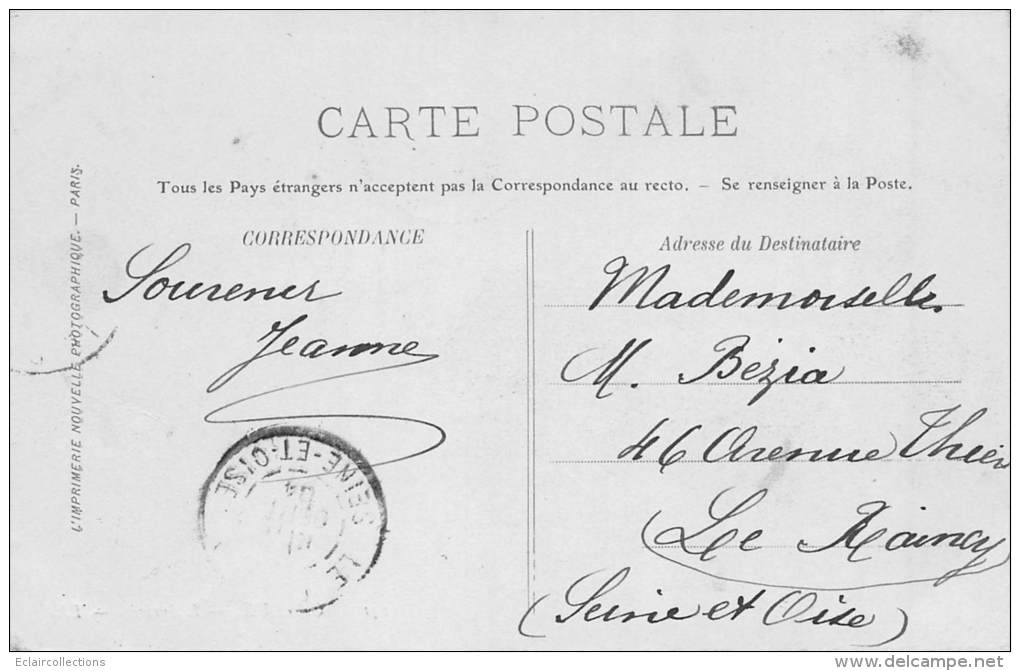 CARTE POSTALE
Tous les Pays étrangers n'acceptent pas la Correspondance au recto. – Se renseigner à la Poste.
CORRESPONDANCE
Souvenir
Jeanne
Adresse du Destinataire
Mademoiselle
M. Bézia
46 Avenue Thiers
Le Raincy
(Seine et Oise)
L'IMPRIMERIE NOUVELLE PHOTOGRAPHIQUE. — PARIS.
SEINE-ET-OISE
LE
Eclaircollections
delcampe.net